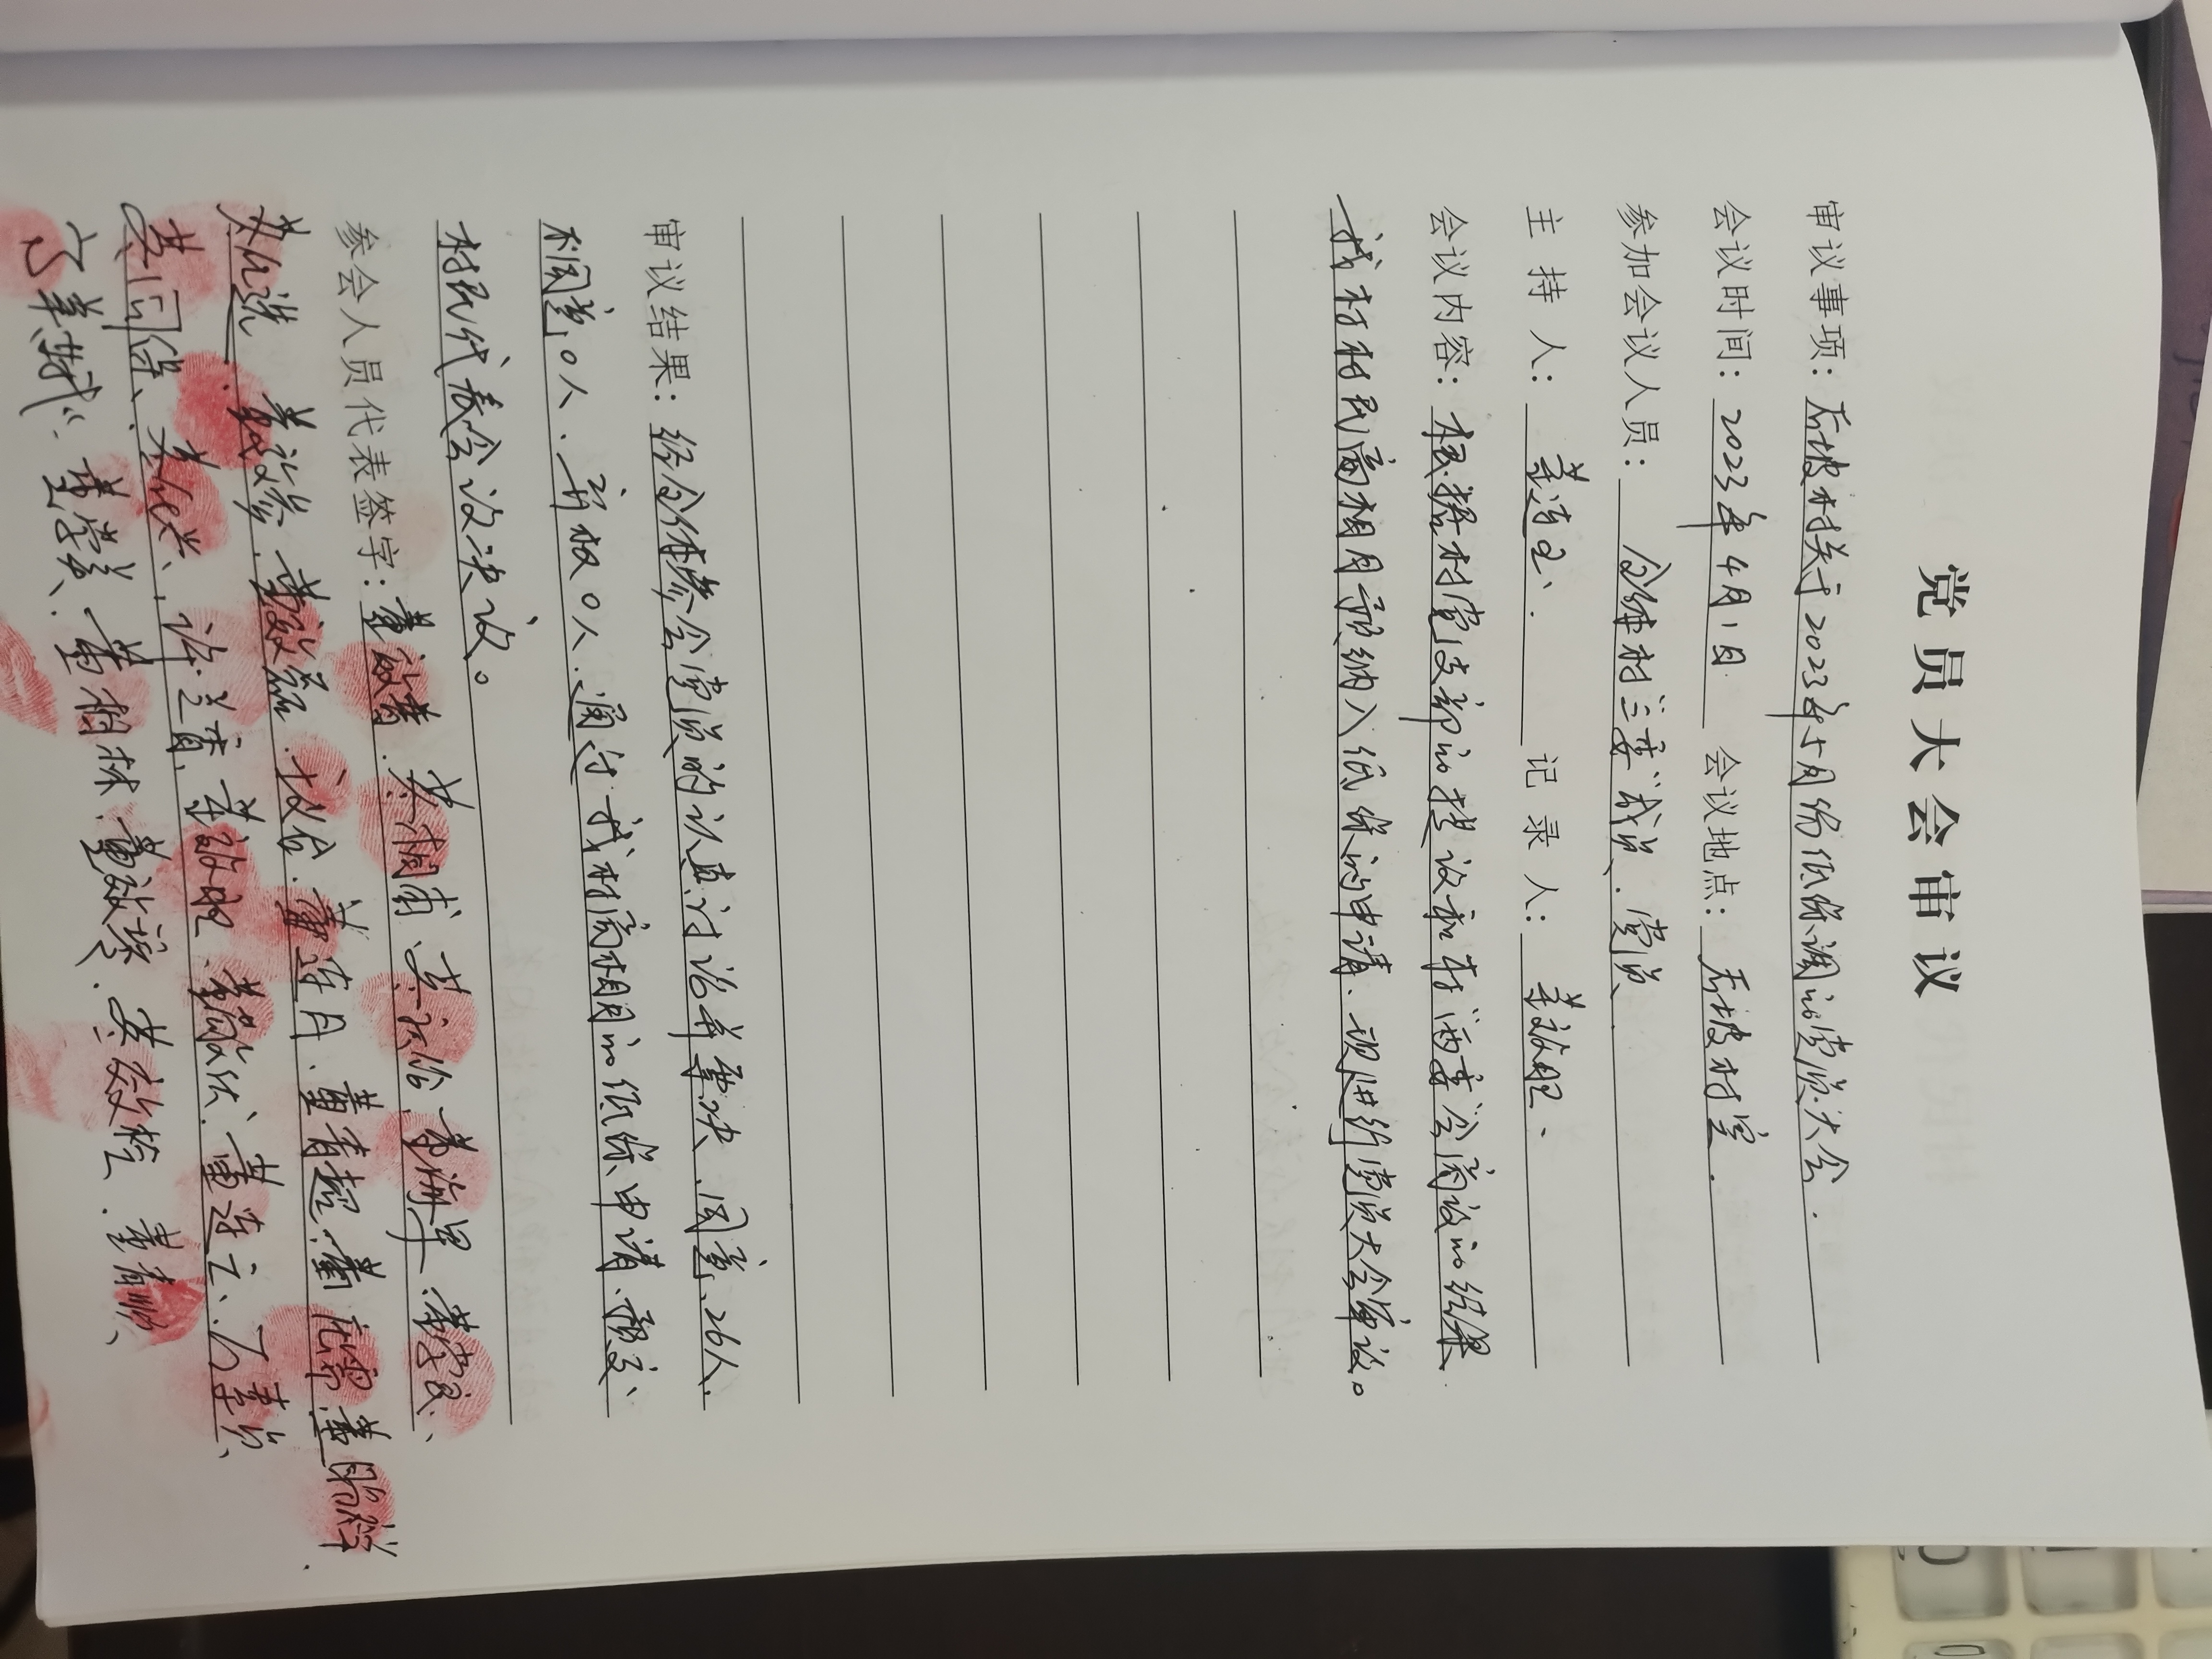 党员大会审议
审议事项：石坡村关于2023年5月份低保调的党员大会.
会议时间：2023年4月1日 会议地点：石坡村室.
参加会议人员：全体村“三委”成员、党员.
主持人：董连玉. 记录人：董效胆.
会议内容：根据村党支部的提议和村“两委”会商议的结果
我村村民商相月预纳入低保的申请、现进行党员大会审议。
审议结果：经全体参会党员的认真讨论并票决、同意、26人、
不同意0人、弃权0人、通过我村商相月的低保申请、预交
村民代表会议决议。
参会人员代表签字：董效普、董相甫、董庆伦、董海旱、董学良、
董化选、董效参、董效磊、董连月、董青超、董庄需、董昭祥、
董同保、董化兴、许兰香、董效胆、董敬伏、董连云、万素贞
董学美、董相林、董效琴、董效栓、董青顺